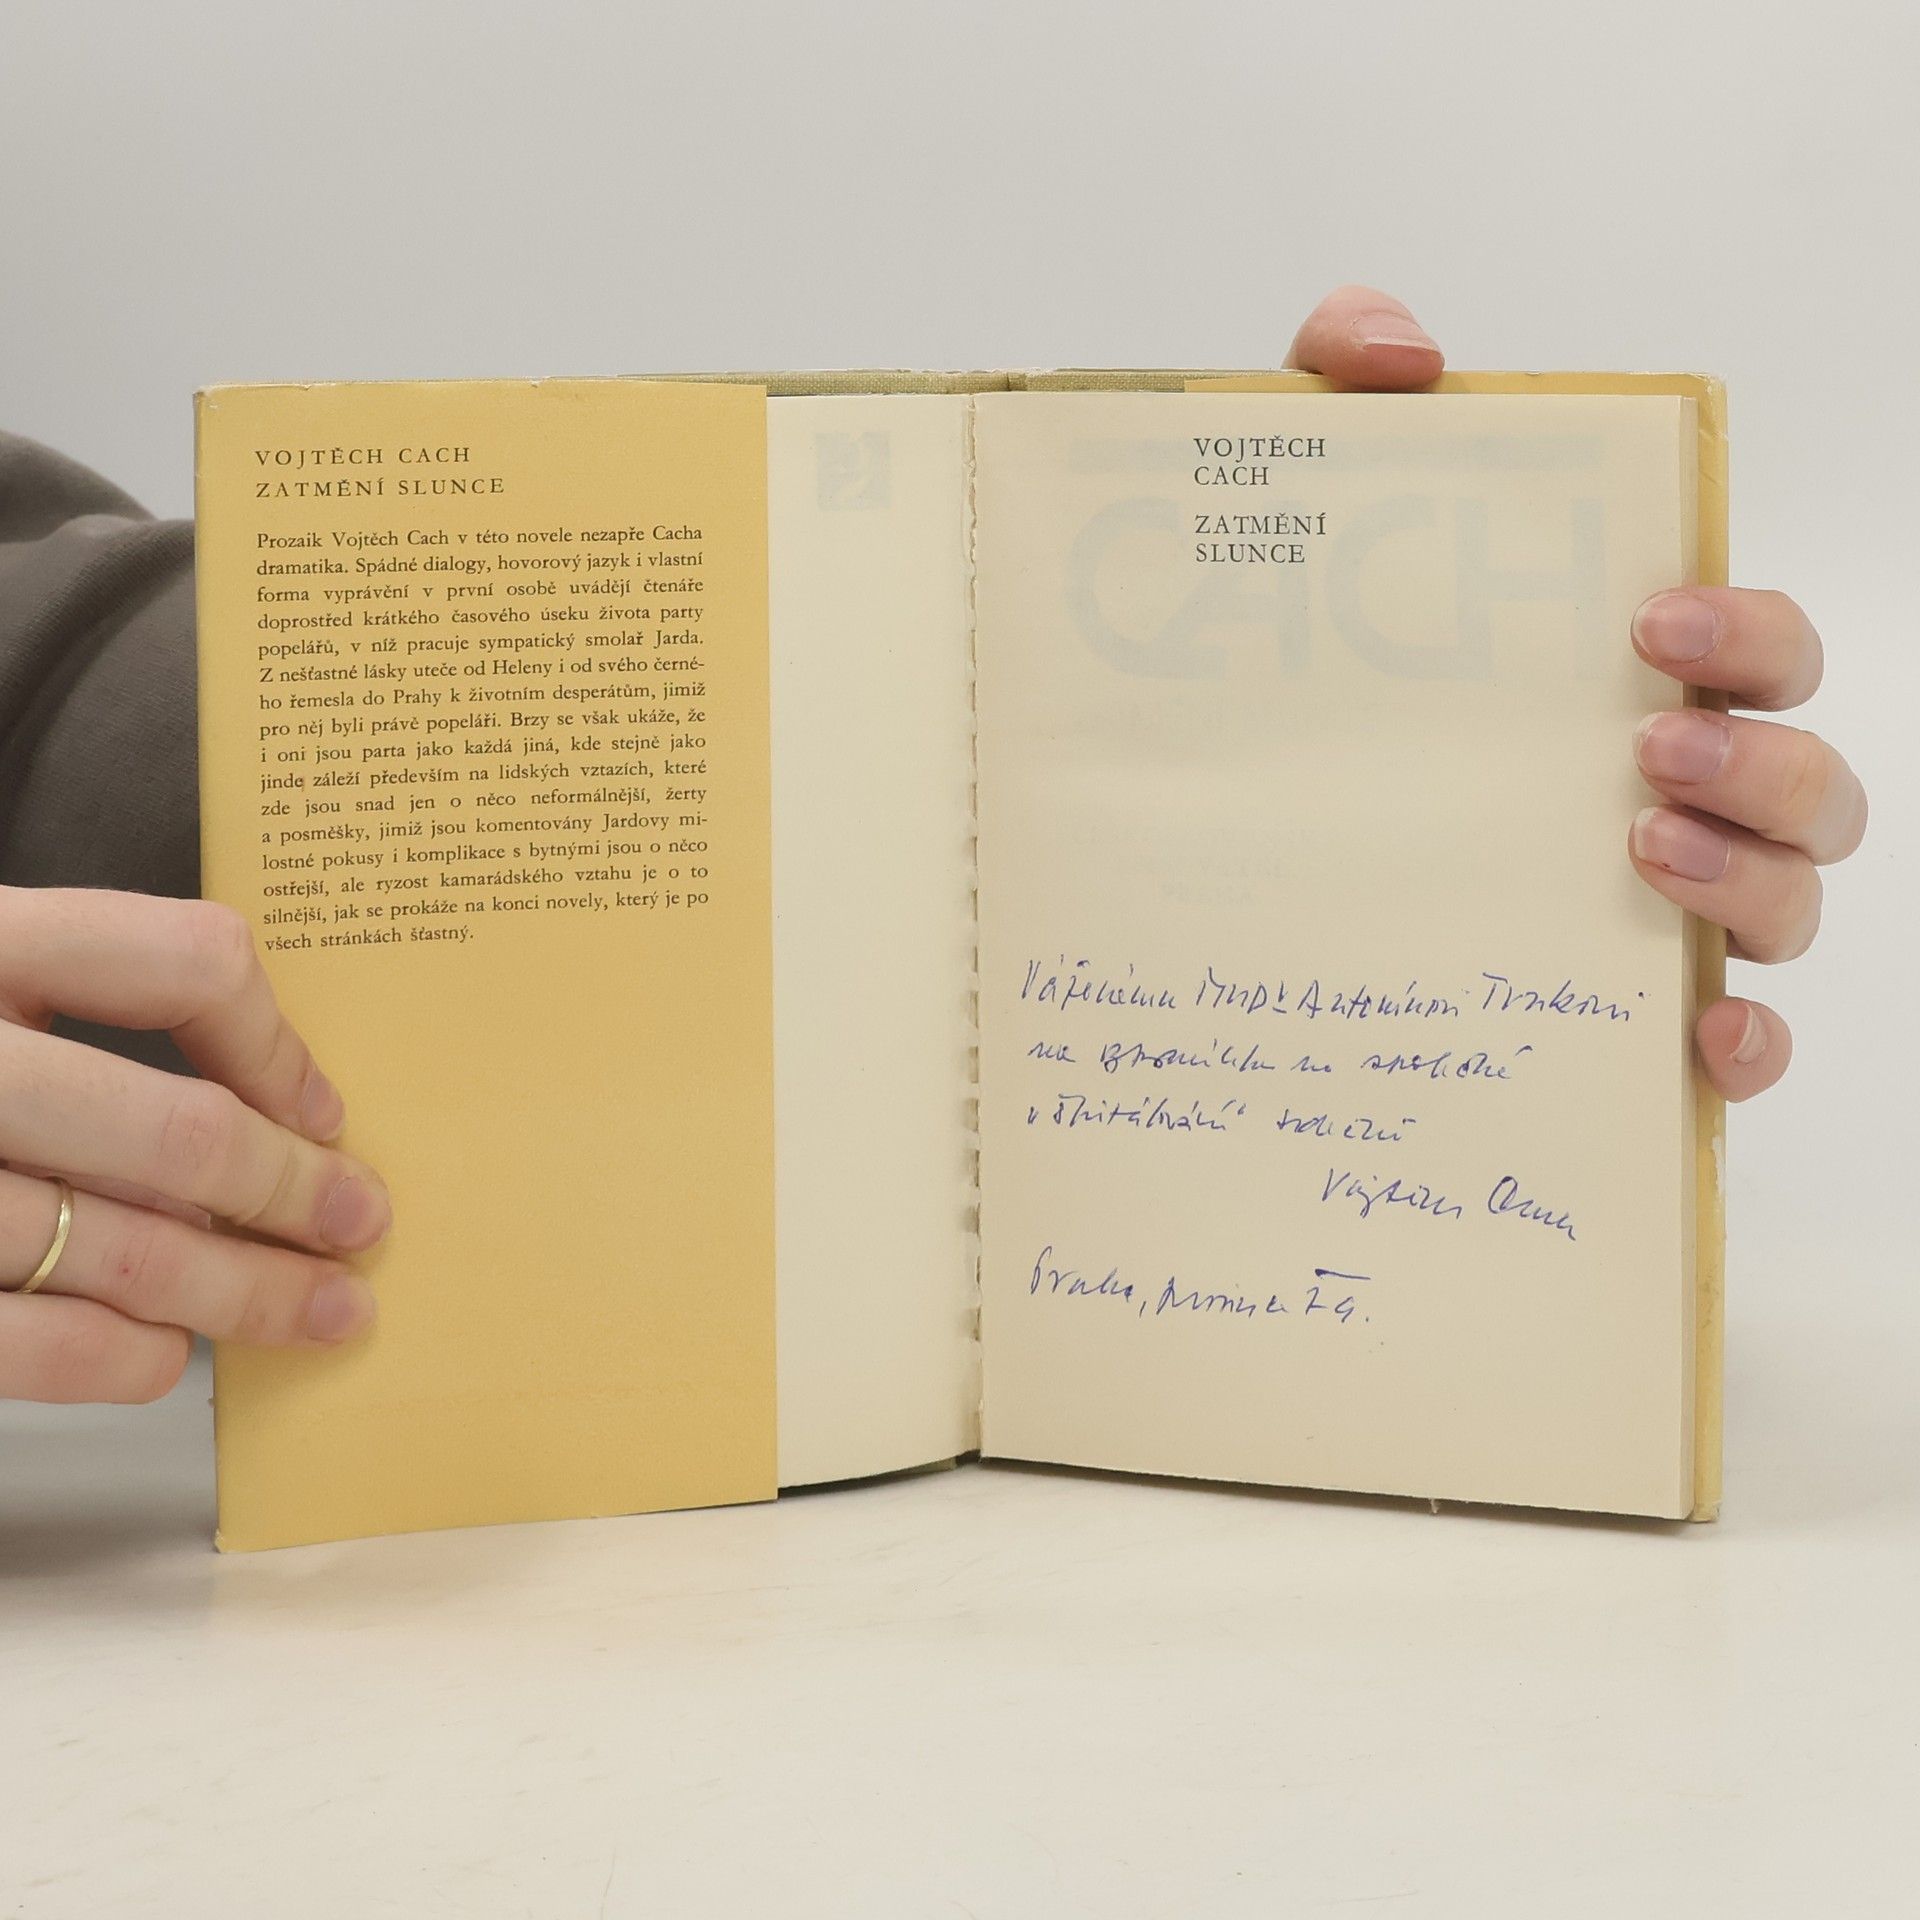 VOJTĚCH CACH
ZATMĚNÍ SLUNCE
Prozaik Vojtěch Cach v této novele nezapře Cacha
dramatika. Spádné dialogy, hovorový jazyk i vlastní
forma vyprávění v první osobě uvádějí čtenáře
doprostřed krátkého časového úseku života party
popelářů, v níž pracuje sympatický smolař Jarda.
Z nešťastné lásky uteče od Heleny i od svého černé-
ho řemesla do Prahy k životním desperátům, jimiž
pro něj byli právě popeláři. Brzy se však ukáže, že
i oni jsou parta jako každá jiná, kde stejně jako
jinde záleží především na lidských vztazích, které
zde jsou snad jen o něco neformálnější, žerty
a posměšky, jimiž jsou komentovány Jardovy mi-
lostné pokusy i komplikace s bytnými jsou o něco
ostřejší, ale ryzost kamarádského vztahu je o to
silnější, jak se prokáže na konci novely, který je po
všech stránkách šťastný.
VOJTĚCH
CACH
ZATMĚNÍ
SLUNCE
Váženému MUDr Antonínovi
na vzpomínku na společné
„špitálování" srdečně
Vojtěch Cach
Praha, prosinec 79.